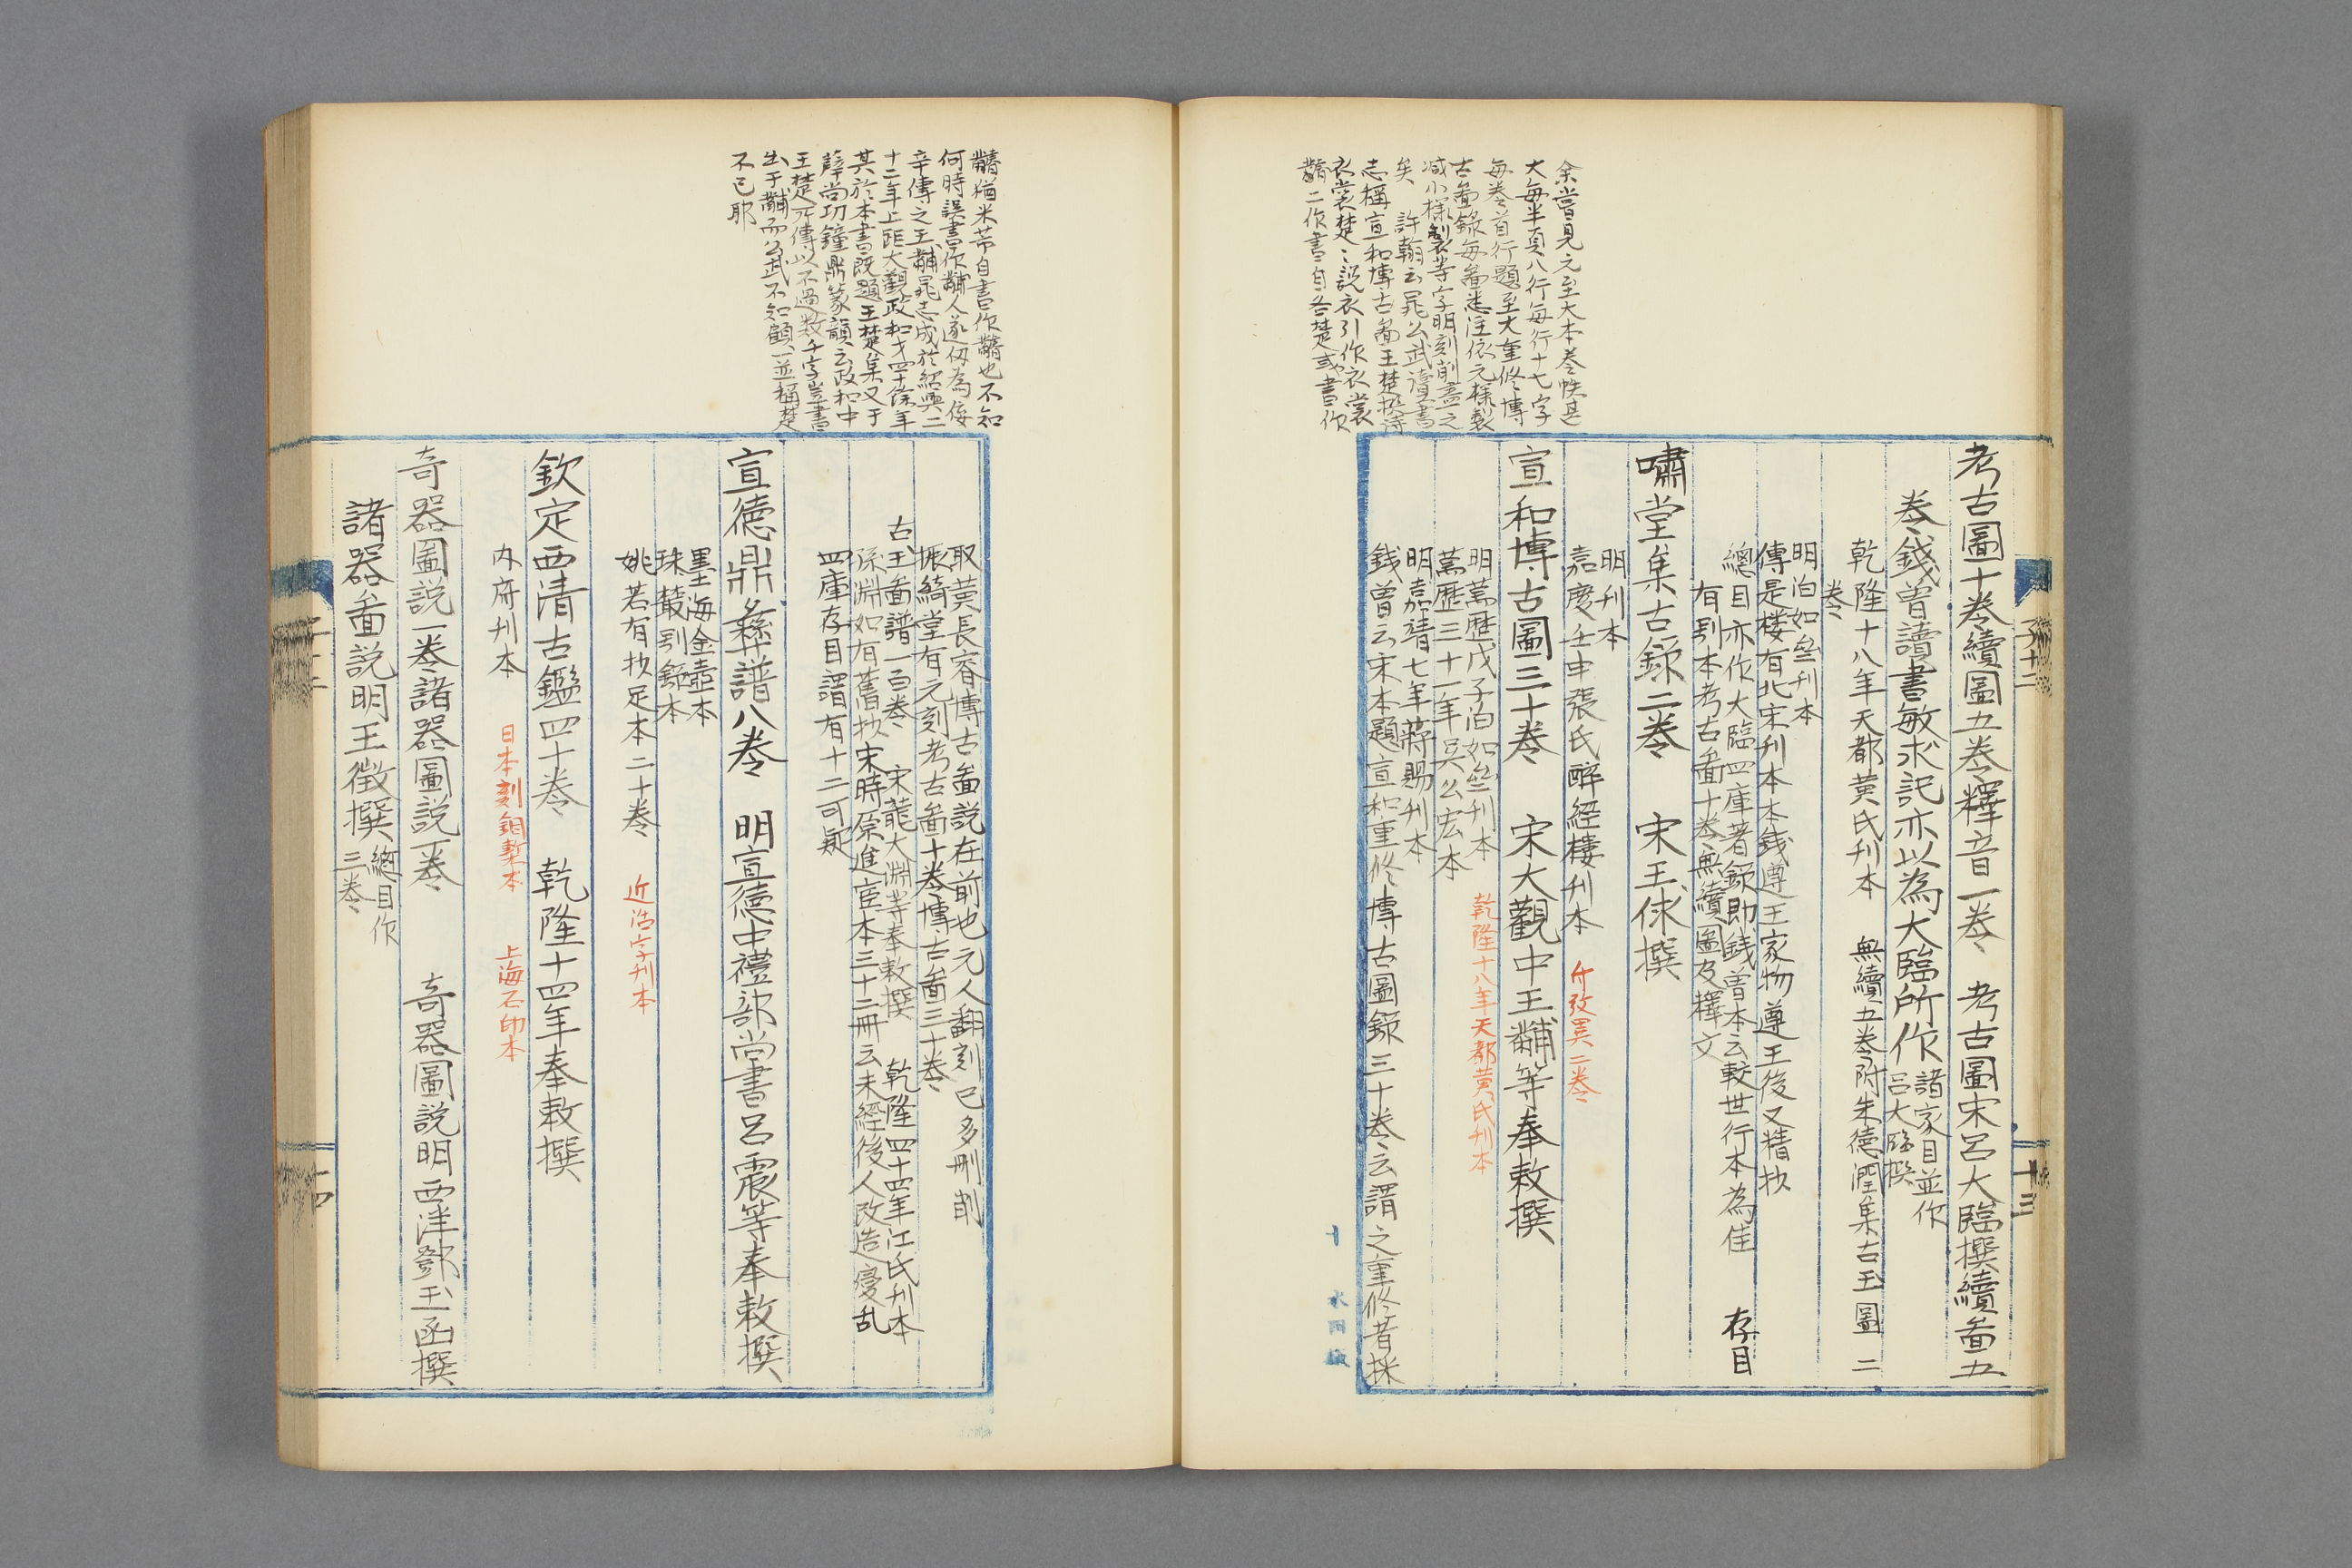 余嘗見元至大本卷帙甚
大每半頁八行每行十七字
每卷首行題至大重修博
古啚錄每啚悉注依元樣製
減小樣製等字明刻前盡之
矣 許翰云晁公武讀書
志稱宣和博古啚王楚撰
衣裳楚〻說衣引作衣裳
二作書自名楚或書作
子十二
十三
考古圖十卷續圖五卷釋音一卷 考古圖宋呂大臨撰續啚五
卷錢曾讀書敏求記亦以為大臨所作
諸家目並作
呂大臨撰
乾隆十八年天都黃氏刊本 無續五卷附朱德潤集古玉圖二
卷
明泊如齋刊本
傳是樓有北宋刊本本錢遵王家物遵王後又精抄
總目亦作大臨四庫著錄即錢曾本云較世行本為佳 存目
有別本考古啚十卷無續圖及釋文
嘯堂集古錄二卷 宋王俅撰
明刊本
嘉慶壬申張氏醉經樓刊本 坿攷異二卷
宣和博古圖三十卷 宋大觀中王黼等奉敕撰
明萬歷戊子泊如齋刊本 乾隆十八年天都黃氏刊本
萬歷三十一年吳公宏本
明嘉靖七年蔣賜刊本
錢曾云宋本題宣和重修博古圖錄三十卷云謂之重修者採
猶米芾自書作也不知
何時誤書作黼人遂仞為佞
辛傳之王黼晁志成於紹興二
十二年上距大觀政和才四十餘年
其於本書既題王楚集又于
薛尚功鐘鼎篆韻云政和中
王楚所傳以不過數千字豈書
出于黼而公武不知顧一並稱楚
不已耶
取黃長睿博古啚說在前也元人翻刻已多刪削
振綺堂有元刻考古啚十卷博古啚三十卷
古玉啚譜一百卷 宋龍大淵等奉敕撰 乾隆四十四年江氏刊本
孫淵如有舊抄宋時原進官本三十二冊云未經後人改造優乱
四庫存目謂有十二可疑
宣德鼎彝譜八卷 明宣德中禮部尚書呂震等奉敕撰
墨海金壺本
珠叢別錄本
姚若有抄足本二十卷 近活字刊本
欽定西清古鑑四十卷 乾隆十四年奉敕撰
內府刊本 日本刻銅槧本 上海石印本
奇器圖說一卷諸器圖說一卷 奇器圖說明西洋鄧玉函撰
諸器啚說明王徵撰
總目作
三卷
十四